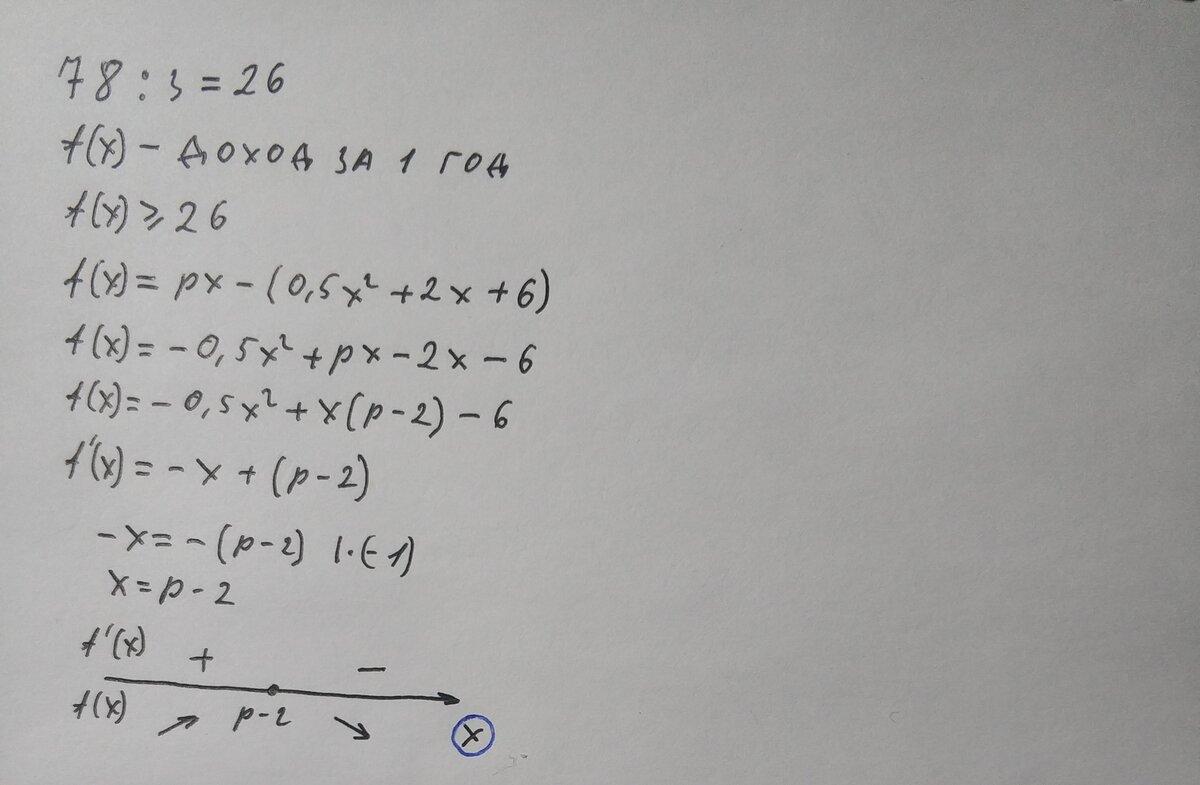 78 : 3 = 26
f(x) - ДОХОД ЗА 1 ГОД
f(x) ⩾ 26
f(x) = px - (0,5x² + 2x + 6)
f(x) = - 0,5x² + px - 2x - 6
f(x) = - 0,5x² + x(p - 2) - 6
f'(x) = - x + (p - 2)
- x = - (p - 2) | · (-1)
x = p - 2
f'(x) + -
f(x) p - 2 x